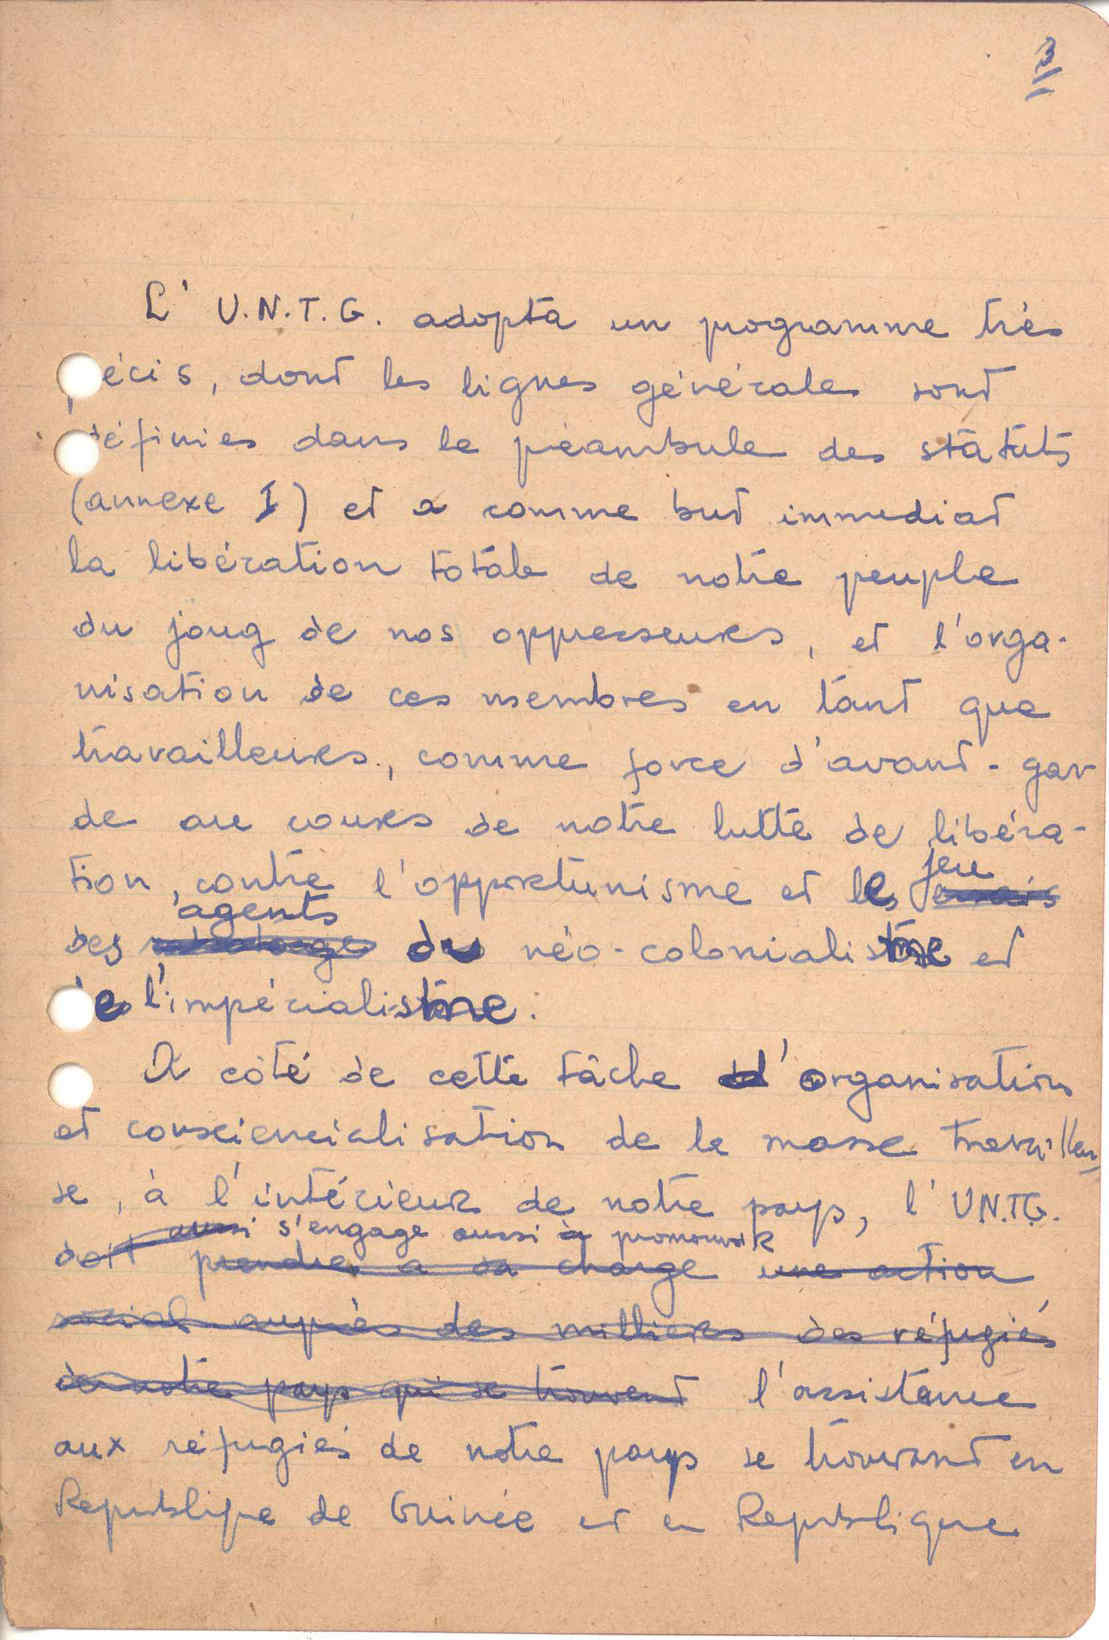 3
L' U.N.T.G. adopta un programme très
écis, dont les lignes générales sont
définies dans le préambule des statuts
(annexe I) et a comme but immediat
la libération totale de notre peuple
du joug de nos oppresseurs, et l'orga-
nisation de ces membres en tant que
travailleurs, comme force d'avant-gar
de au cours de notre lutte de libéra-
tion, contre l'opportunisme et le jeu
des agents du néo-colonialisme et
de l'impérialisme.
A côté de cette tâche d'organisation
et consciencialisation de la masse travailleu
se, à l'intérieur de notre pays, l'UNTG.
aussi s'engage aussi à promouvoir
doit prendre a sa charge une action
social auprès des milliers des réfugiés
de notre pays qui se trouvent l'assistance
aux réfugiés de notre pays se trouvant en
Republique de Guinée et en Republique